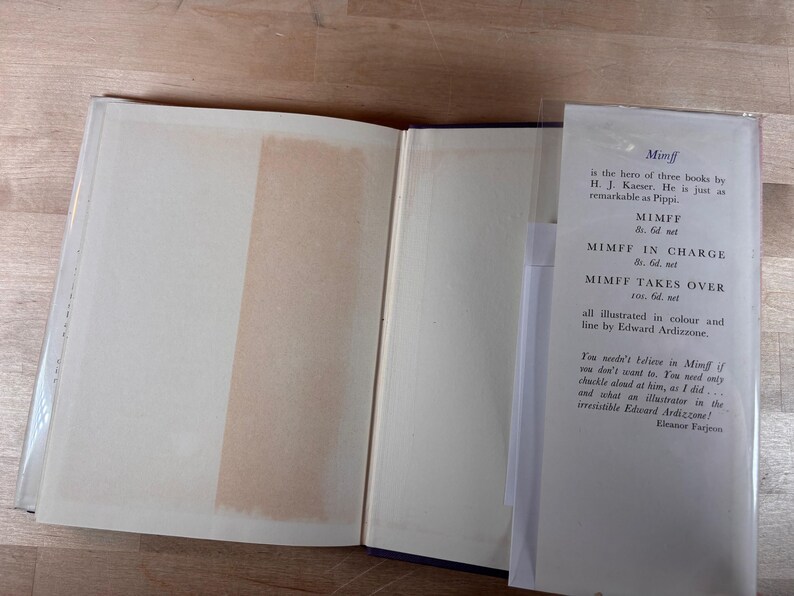 Mimff
is the hero of three books by
H. J. Kaeser. He is just as
remarkable as Pippi.
MIMFF
8s. 6d. net
MIMFF IN CHARGE
8s. 6d. net
MIMFF TAKES OVER
10s. 6d. net
all illustrated in colour and
line by Edward Ardizzone.
You needn't believe in Mimff if
you don't want to. You need only
chuckle aloud at him, as I did . . .
and what an illustrator in the
irresistible Edward Ardizzone!
Eleanor Farjeon